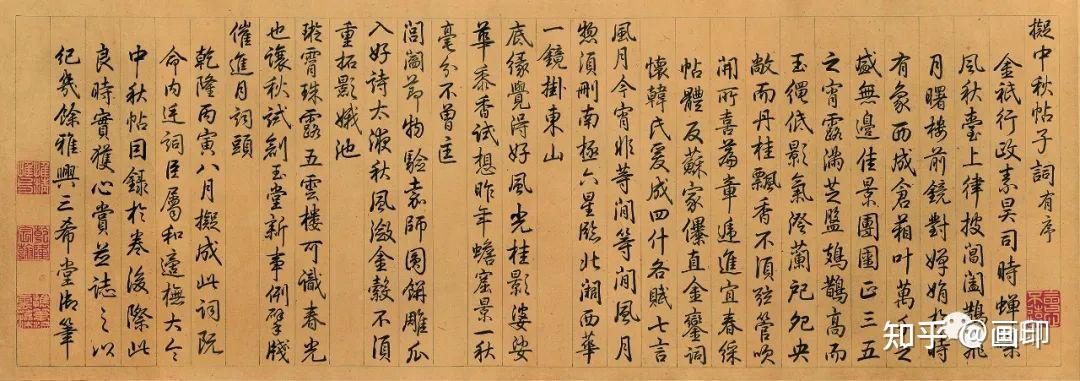 擬中秋帖子詞有序
金祇行政素昊司時蟬
風秋臺上律披閶闔鵲飛
月曙樓前鏡對嬋娟於時
有象西成倉箱叶萬千之
盛無邊佳景團圞正三五
之宵露滿芝盤鳷鵲高而
玉繩低影氣澄蘭戺央
敞而丹桂飄香不須弦管吹
開所喜篇章遞進宜春綵
帖體反蘇家儤直金鑾詞
懷韓氏爰成四什各賦七言
風月今宵非等閒等閒風月
惣須刪南極六星臨北闕西華
一鏡掛東山
底緣覺得好風光桂影婆娑
華黍香試想昨年蟾窟景一秋
毫分不曾匡
閶闔節物驗嘉師圓餅雕瓜
入好詩太液秋風瀲金縠不須
重拓影娥池
璇霄珠露五雲樓可識春光
也讓秋試剏玉堂新事例擘牋
催進月詞頭
乾隆丙寅八月擬成此詞既
命內廷詞臣屬和邇撫大令
中秋帖因錄於卷後際此
良時實獲心賞並誌之以
紀幾餘雅興三希堂御筆
知乎 @画印